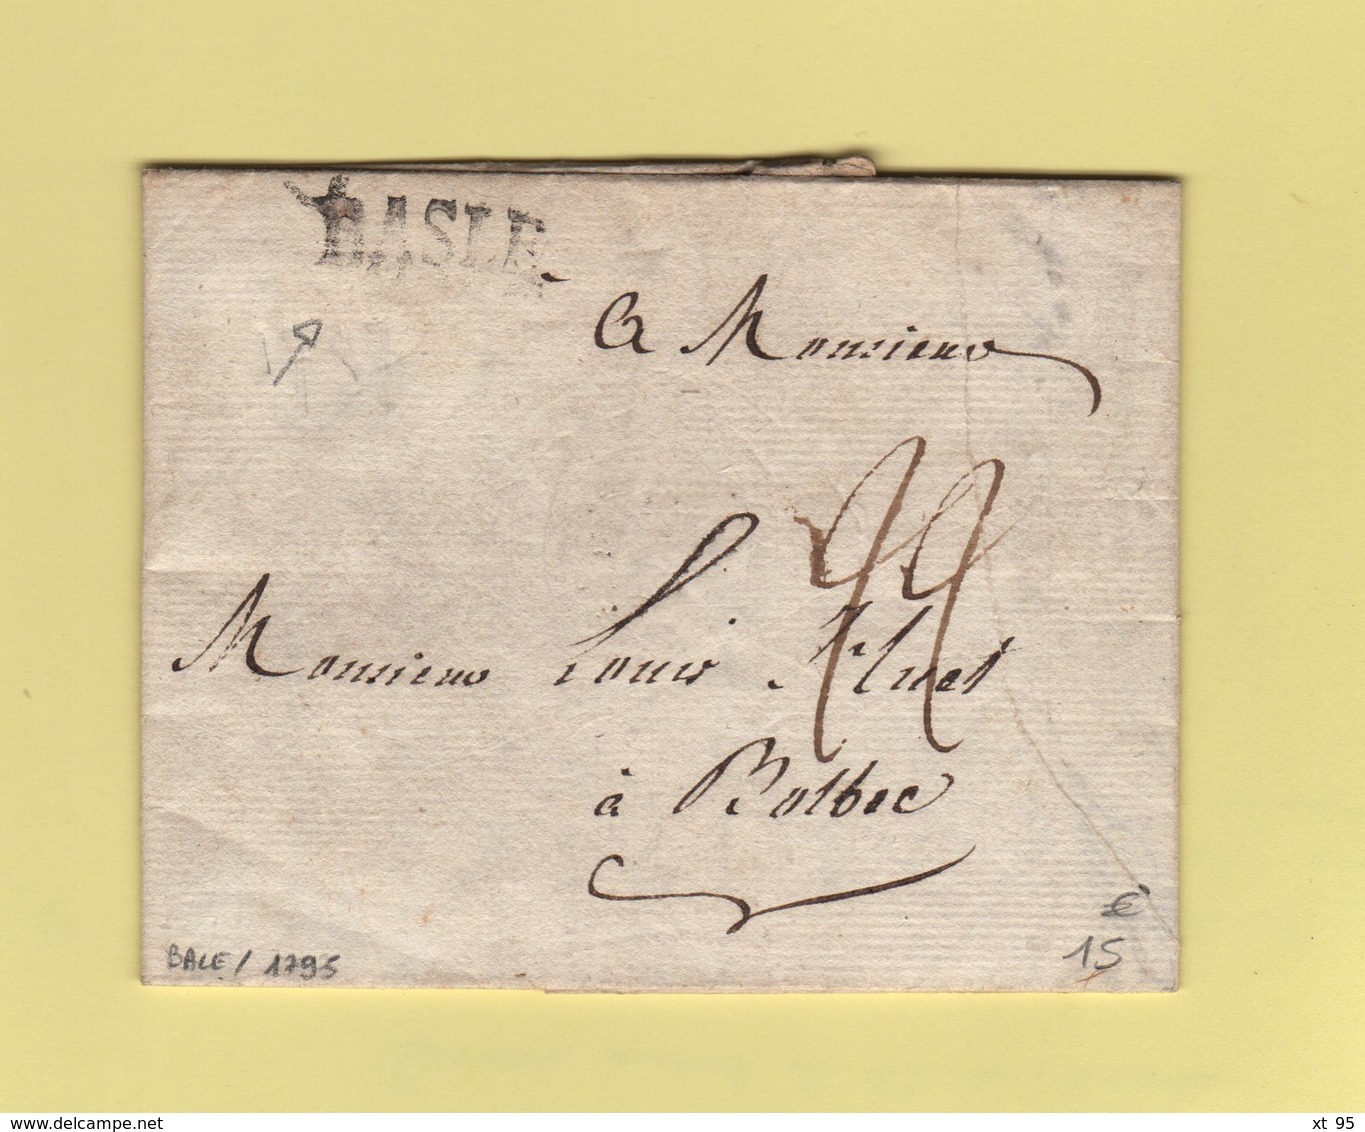 BASLE
A Monsieur
22
Monsieur Louis Huet
à Bolbec
BALE / 1795
€
15
www.delcampe.net
xt 95